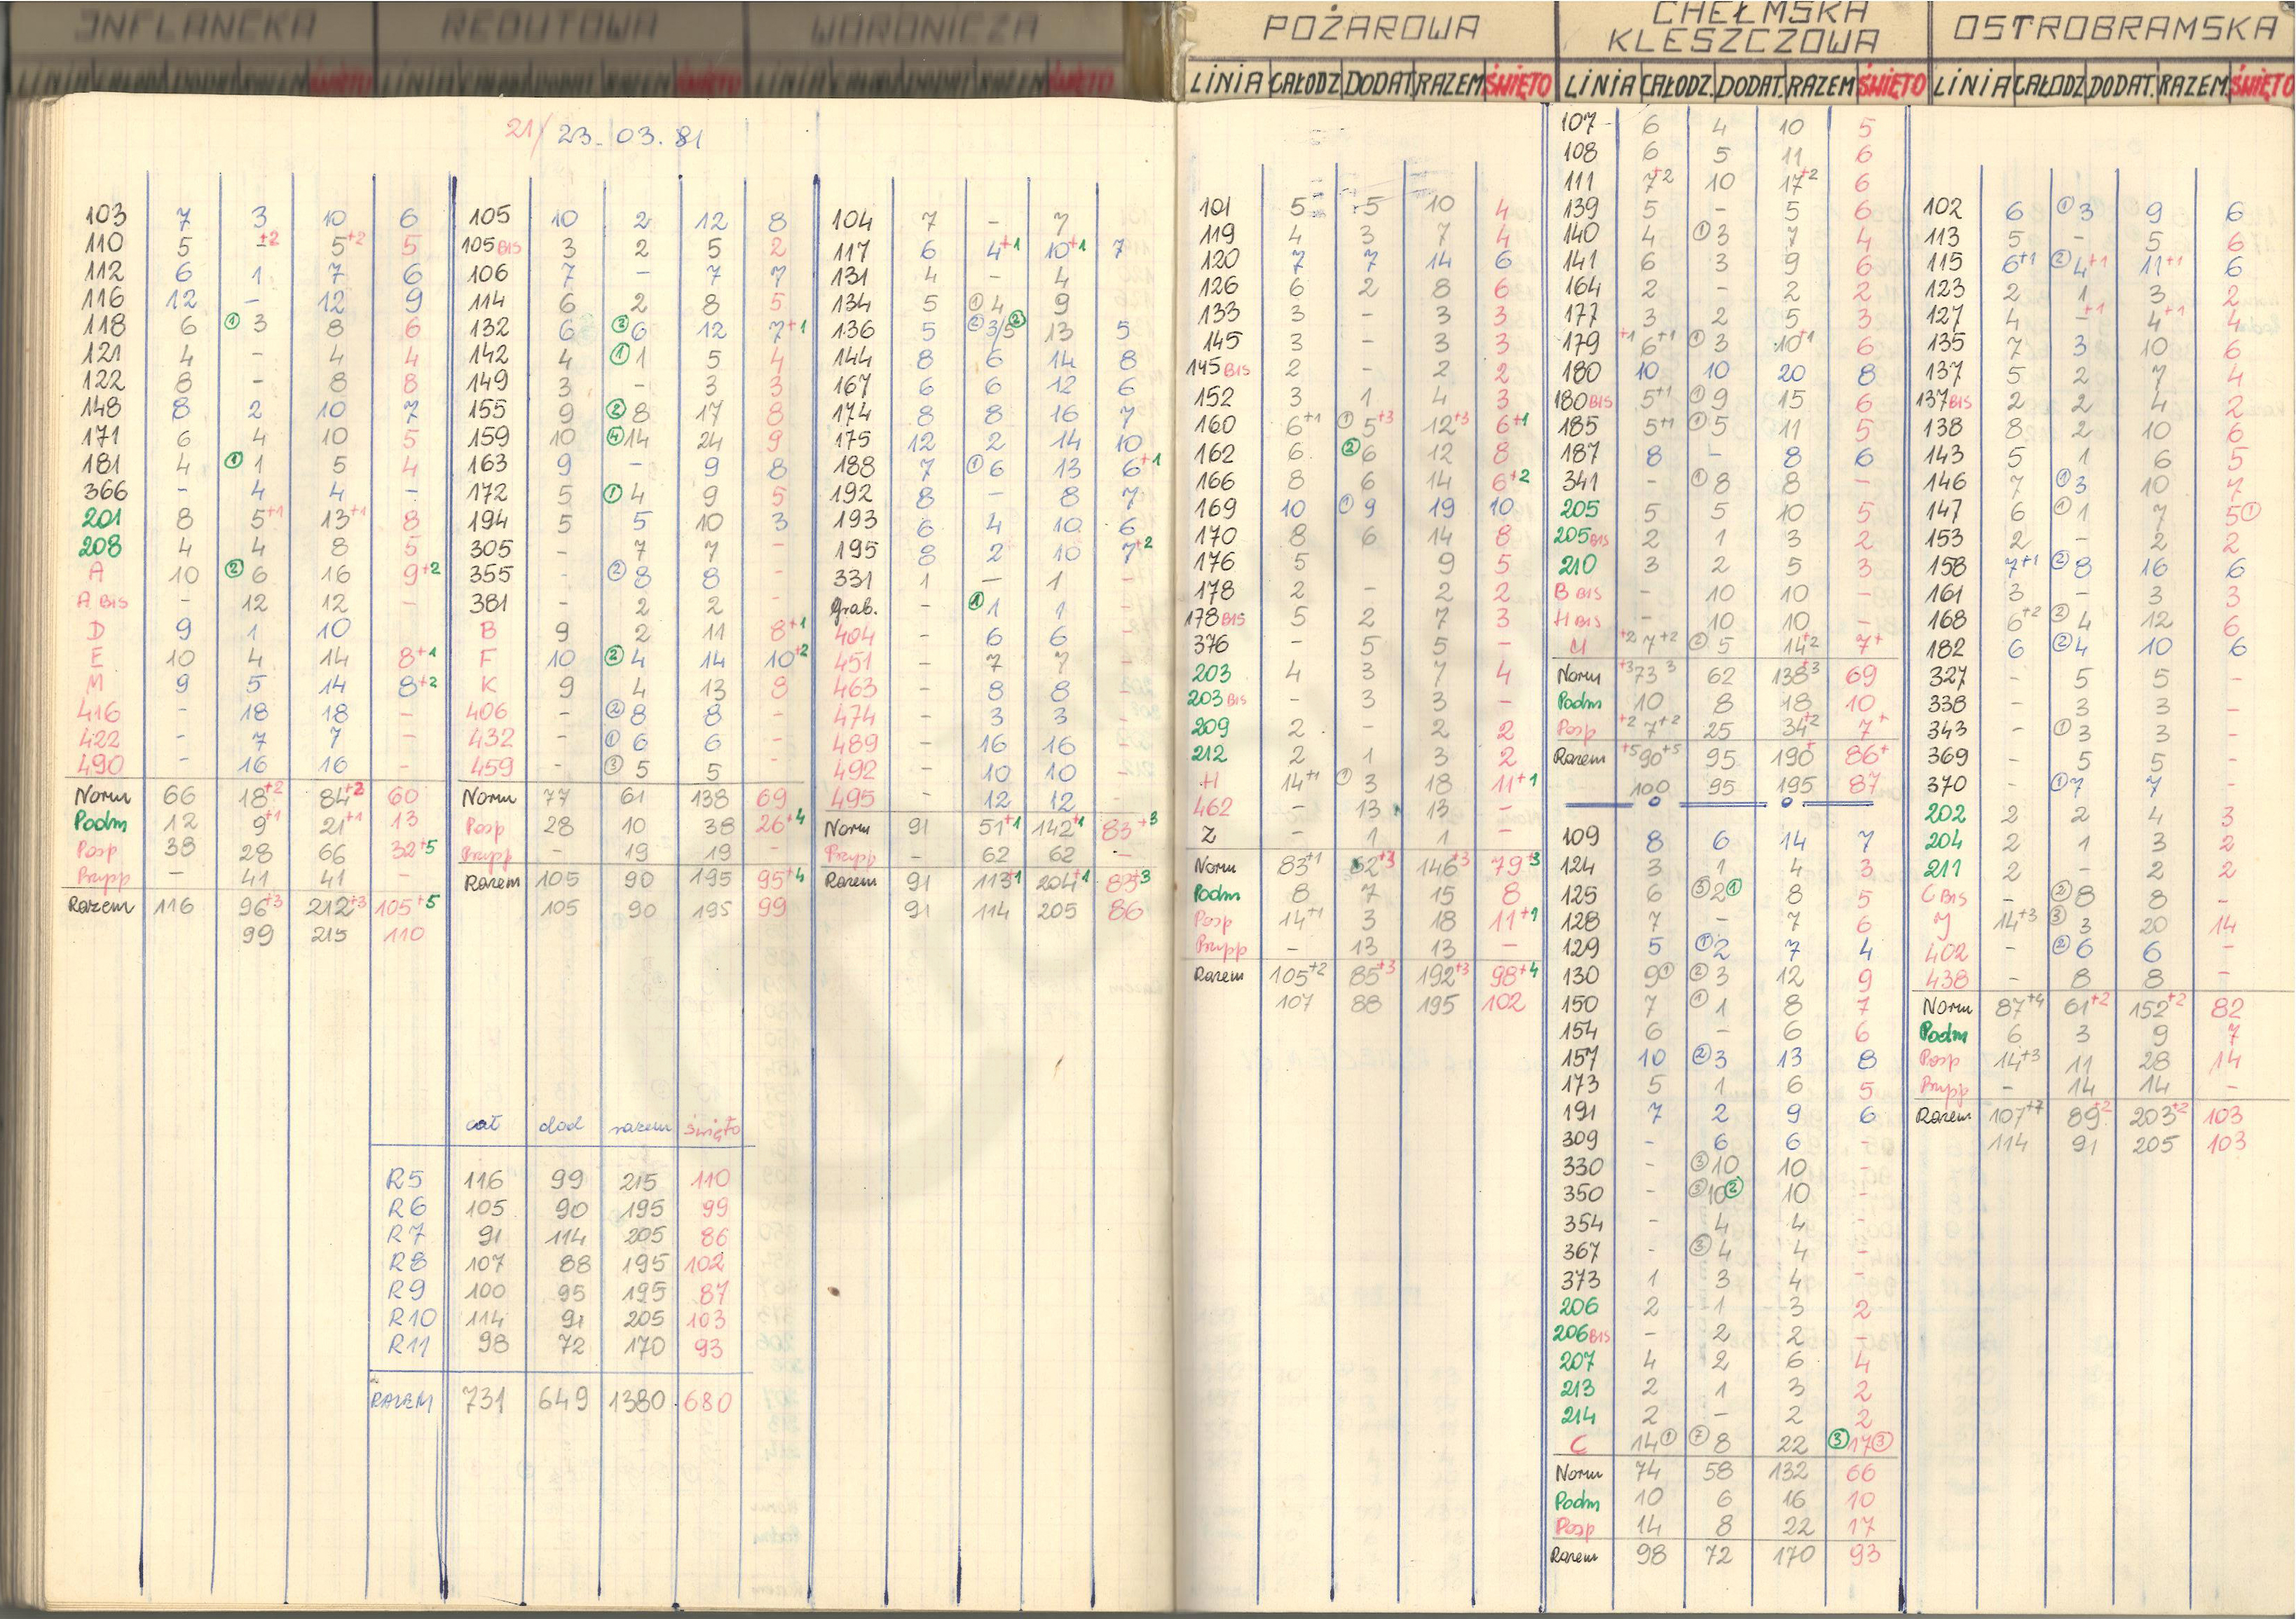 INFLANCKA
LINIA CAŁODZ DODAT RAZEM ŚWIĘTO
21/23.03.81
103 7 3 10 6
110 5 -+2 5+2 5
112 6 1 7 6
116 12 - 12 9
118 6 ①3 8 6
121 4 - 4 4
122 8 - 8 8
148 8 2 10 7
171 6 4 10 5
181 4 ①1 5 4
366 - 4 4 -
201 8 5+1 13+1 8
208 4 4 8 5
A 10 ②6 16 9+2
A BIS - 12 12 -
D 9 1 10
E 10 4 14 8+1
M 9 5 14 8+2
416 - 18 18 -
422 - 7 7 -
490 - 16 16 -
Norm 66 18+2 84+2 60
Podm 12 9+1 21+1 13
Posp 38 28 66 32+5
Przysp - 41 41 -
Razem 116 96+3 212+3 105+5
99 215 110
REDUTOWA
LINIA CAŁODZ DODAT RAZEM ŚWIĘTO
105 10 2 12 8
105 BIS 3 2 5 2
106 7 - 7 7
114 6 2 8 5
132 6 ②6 12 7+1
142 4 ①1 5 4
149 3 - 3 3
155 9 ②8 17 8
159 10 ④14 24 9
163 9 - 9 8
172 5 ①4 9 5
194 5 5 10 3
305 - 7 7 -
355 - ②8 8 -
381 - 2 2 -
B 9 2 11 8+1
F 10 ②4 14 10+2
K 9 4 13 8
406 - ②8 8 -
432 - ①6 6 -
459 - ③5 5 -
Norm 77 61 138 69
Posp 28 10 38 26+4
Przysp - 19 19 -
Razem 105 90 195 95+4
105 90 195 99
cał dod razem święto
R5 116 99 215 110
R6 105 90 195 99
R7 91 114 205 86
R8 107 88 195 102
R9 100 95 195 87
R10 114 91 205 103
R11 98 72 170 93
RAZEM 731 649 1380 680
WORONICZA
LINIA CAŁODZ DODAT RAZEM ŚWIĘTO
104 7 - 7
117 6 4+1 10+1 7
131 4 - 4
134 5 ①4 9
136 5 ②3/5② 13 5
144 8 6 14 8
167 6 6 12 6
174 8 8 16 7
175 12 2 14 10
188 7 ①6 13 6+1
192 8 - 8 7
193 6 4 10 6
195 8 2 10 7+2
331 1 - 1 -
Grab. - ①1 1
404 - 6 6 -
451 - 7 7 -
463 - 8 8 -
474 - 3 3 -
489 - 16 16 -
492 - 10 10 -
495 - 12 12 -
Norm 91 51+1 142+1 83+3
Przysp - 62 62 -
Razem 91 113+1 204+1 83+3
91 114 205 86
POŻAROWA
LINIA CAŁODZ DODAT RAZEM ŚWIĘTO
101 5 5 10 4
119 4 3 7 4
120 7 7 14 6
126 6 2 8 6
133 3 - 3 3
145 3 - 3 3
145 BIS 2 - 2 2
152 3 1 4 3
160 6+1 ①5+3 12+3 6+1
162 6 ②6 12 8
166 8 6 14 6+2
169 10 ①9 19 10
170 8 6 14 8
176 5 9 5
178 2 - 2 2
178 BIS 5 2 7 3
376 - 5 5 -
203 4 3 7 4
203 BIS - 3 3 -
209 2 - 2 2
212 2 1 3 2
H 14+1 ①3 18 11+1
462 - 13 13 -
Z - 1 1 -
Norm 83+1 62+3 146+3 79+3
Podm 8 7 15 8
Posp 14+1 3 18 11+1
Przysp - 13 13 -
Razem 105+2 85+3 192+3 98+4
107 88 195 102
CHEŁMSKA
KLESZCZOWA
LINIA CAŁODZ. DODAT. RAZEM ŚWIĘTO
107 6 4 10 5
108 6 5 11 6
111 7+2 10 17+2 6
139 5 - 5 6
140 4 ①3 7 4
141 6 3 9 6
164 2 - 2 2
177 3 2 5 3
179 +1 6+1 ①3 10+1 6
180 10 10 20 8
180 BIS 5+1 ①9 15 6
185 5+1 ①5 11 5
187 8 - 8 6
341 - ①8 8 -
205 5 5 10 5
205 BIS 2 1 3 2
210 3 2 5 3
B BIS - 10 10 -
H BIS - 10 10 -
U +2 7+2 ②5 14+2 7+
Norm +3 73 3 62 138+3 69
Podm 10 8 18 10
Posp +2 7+2 25 34+2 7+
Razem +5 90+5 95 190+ 86+
100 95 195 87
109 8 6 14 7
124 3 1 4 3
125 6 ③2① 8 5
128 7 - 7 6
129 5 ①2 7 4
130 9① ②3 12 9
150 7 ①1 8 7
154 6 - 6 6
157 10 ②3 13 8
173 5 1 6 5
191 7 2 9 6
309 - 6 6 -
330 - ③10 10 -
350 - ③10② 10 -
354 - 4 4 -
367 - ③4 4 -
373 1 3 4 -
206 2 1 3 2
206 BIS - 2 2 -
207 4 2 6 4
213 2 1 3 2
214 2 - 2 2
C 14① ⑦8 22 ③17③
Norm 74 58 132 66
Podm 10 6 16 10
Posp 14 8 22 17
Razem 98 72 170 93
OSTROBRAMSKA
LINIA CAŁODZ DODAT. RAZEM. ŚWIĘTO
102 6 ①3 9 6
113 5 - 5 6
115 6+1 ②4+1 11+1 6
123 2 1 3 2
127 4 -+1 4+1 4
135 7 3 10 6
137 5 2 7 4
137 BIS 2 2 4 2
138 8 2 10 6
143 5 1 6 5
146 7 ①3 10 7
147 6 ①1 7 5①
153 2 - 2 2
158 7+1 ②8 16 6
161 3 - 3 3
168 6+2 ②4 12 6
182 6 ②4 10 6
327 - 5 5 -
338 - 3 3 -
343 - ①3 3 -
369 - 5 5 -
370 - ①7 7 -
202 2 2 4 3
204 2 1 3 2
211 2 - 2 2
C BIS - ②8 8 -
J 14+3 ③3 20 14
402 - ②6 6 -
438 - 8 8 -
Norm 87+4 61+2 152+2 82
Podm 6 3 9 7
Posp 14+3 11 28 14
Przysp - 14 14 -
Razem 107+7 89+2 203+2 103
114 91 205 103